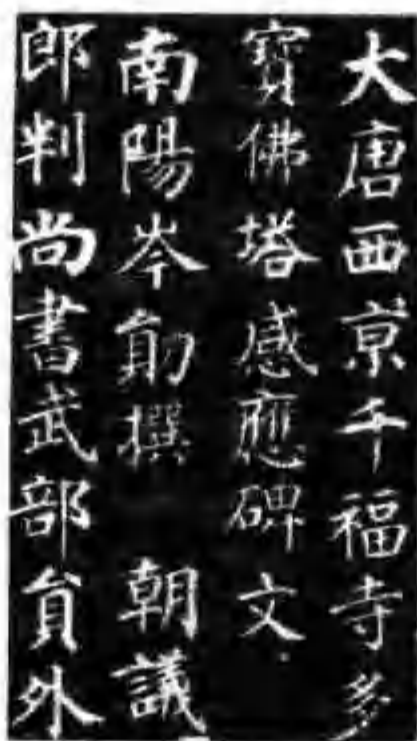 大唐西京千福寺多
寶佛塔感應碑文
南陽岑勛撰　朝議
郎判尚書武部員外